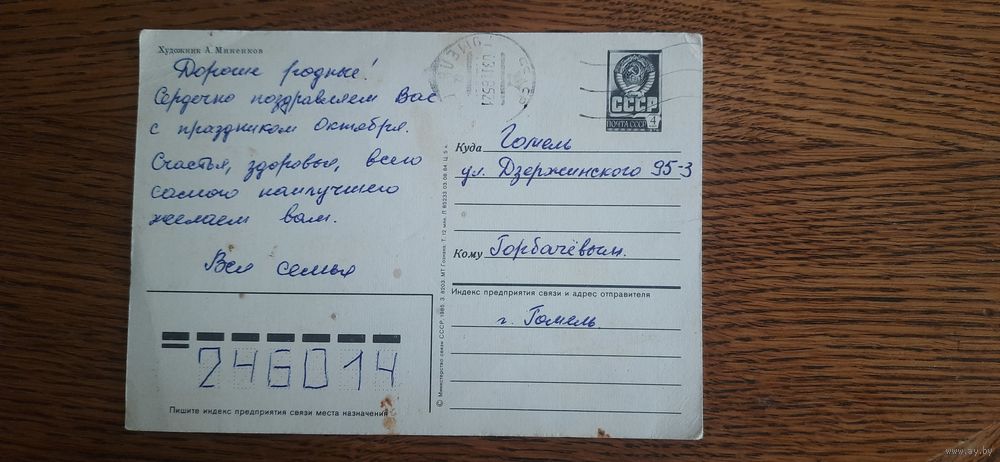 Художник А. Миненков
Дорогие родные!
Сердечно поздравляем Вас
с праздником Октября.
Счастья, здоровья, всего
самого наилучшего
желаем вам.
Вся семья
246014
Пишите индекс предприятия связи места назначения
© Министерство связи СССР, 1985. З. 8203. МТ Гознака. Т. 12 млн. Л 85233 03.08.84 Ц. 5 к.
СССР
ПОЧТА СССР 4
Куда Гомель
ул. Дзержинского 95-3
Кому Горбачёвым.
Индекс предприятия связи и адрес отправителя
г. Гомель
www.ay.by